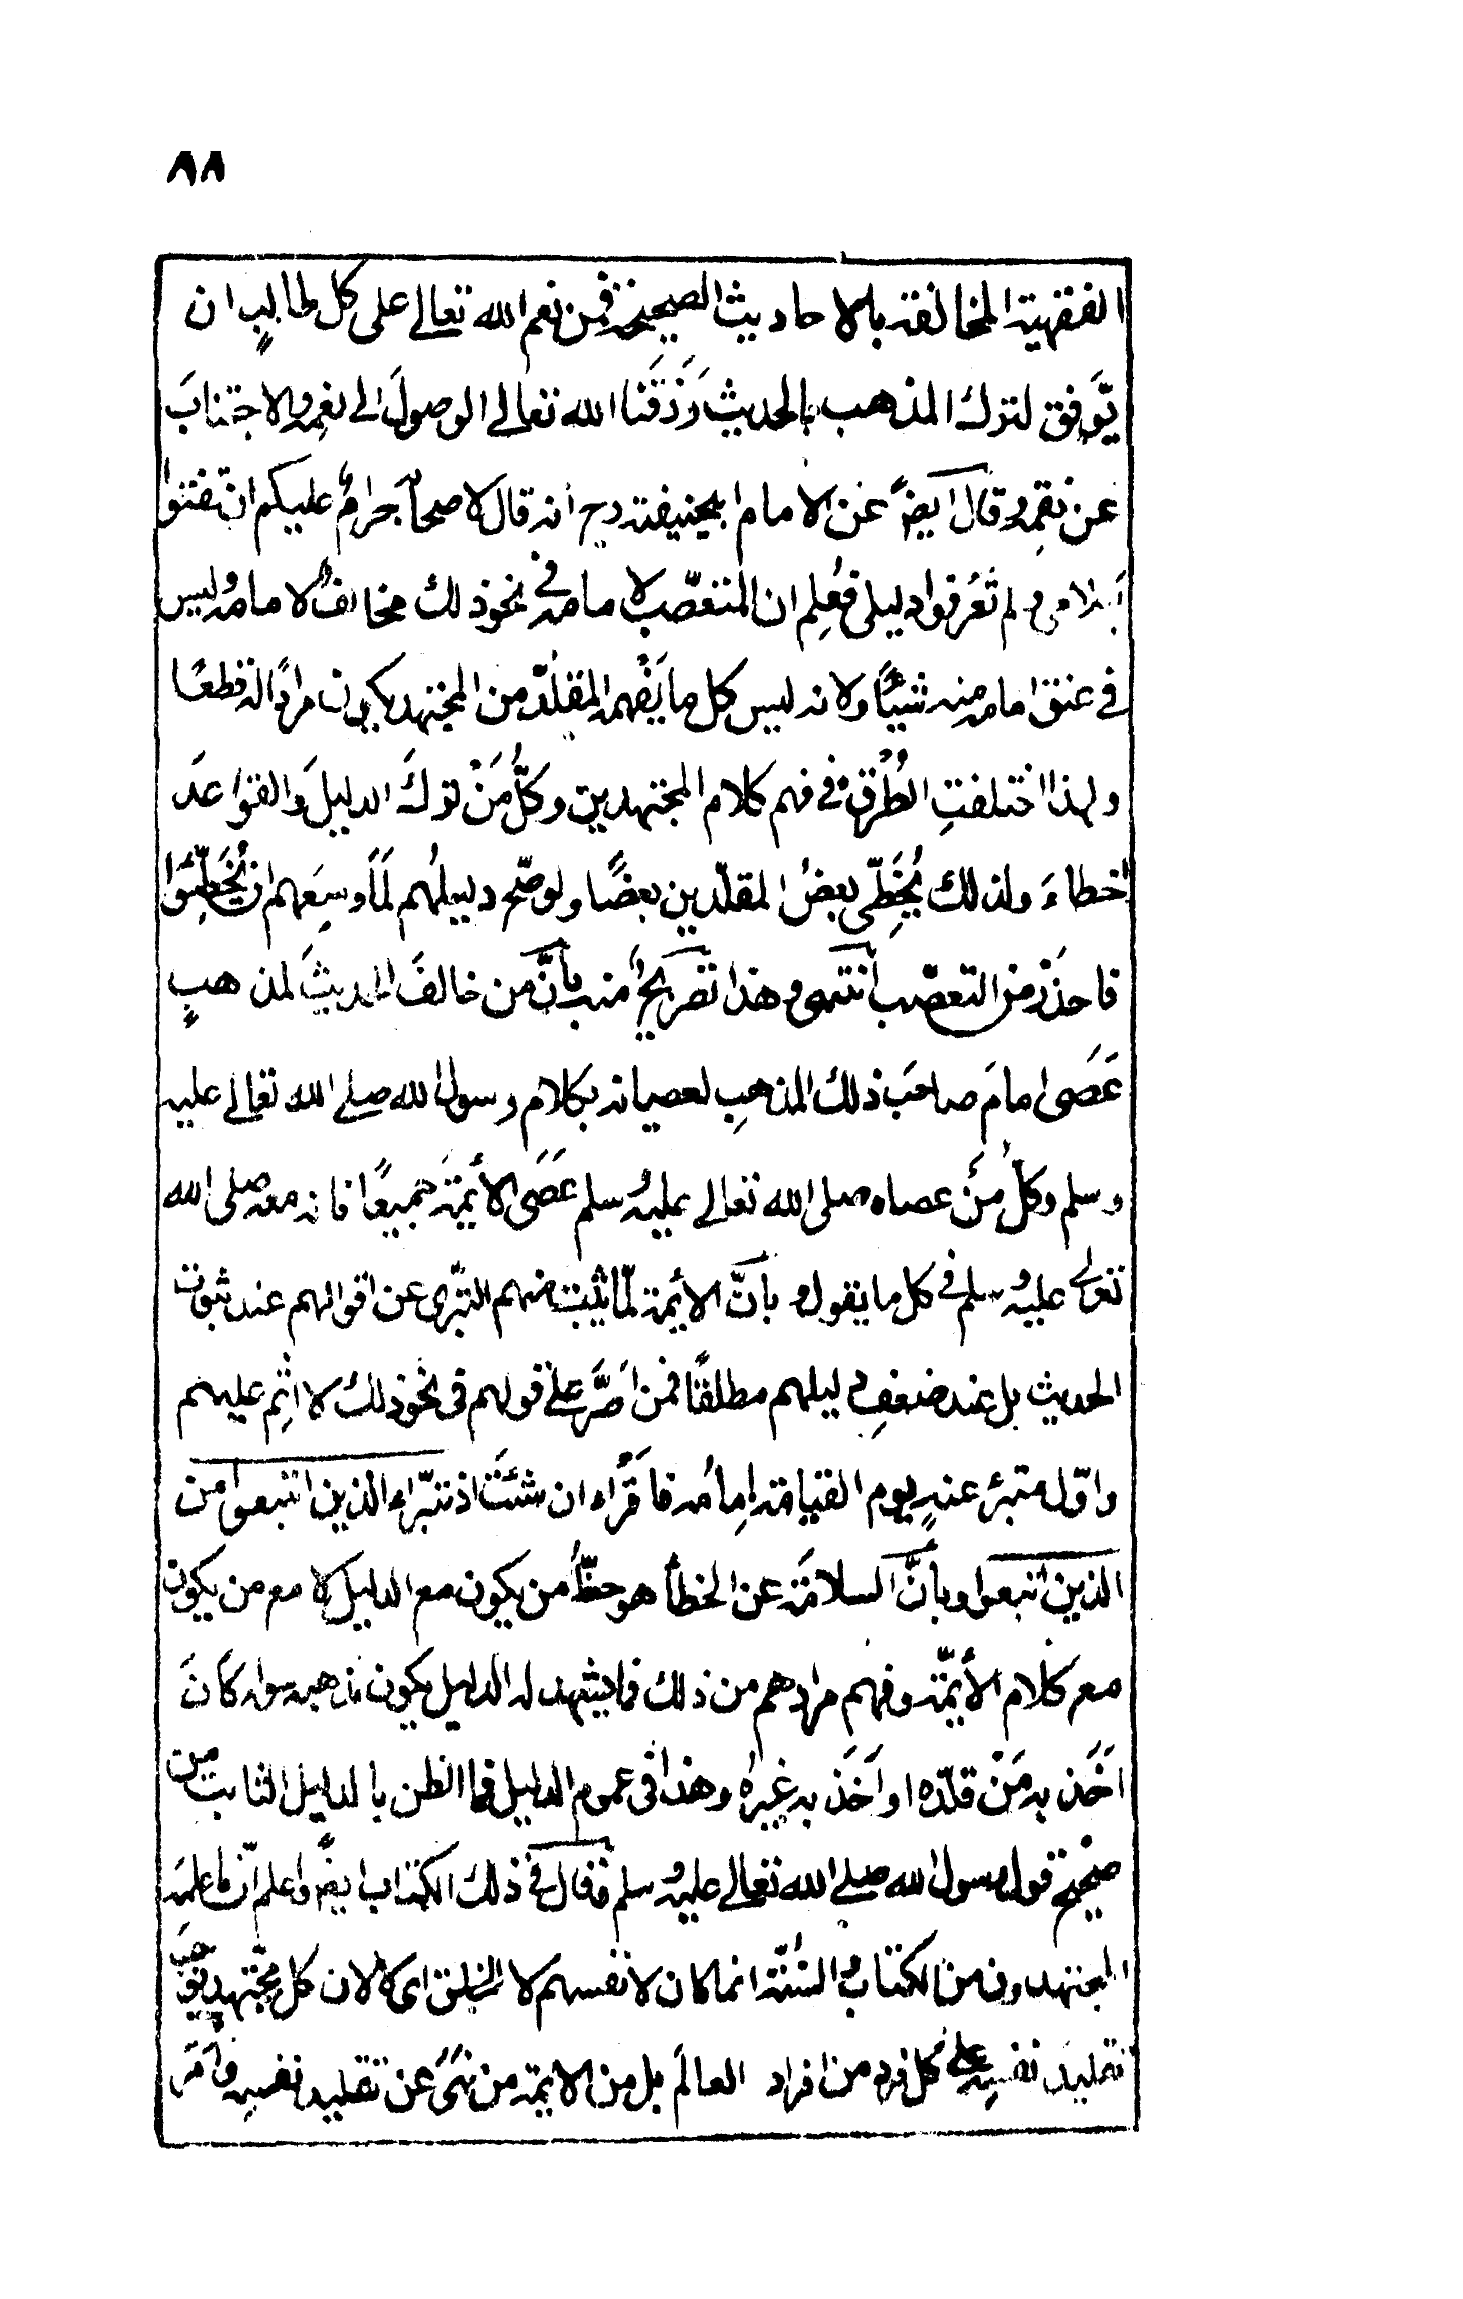 ٨٨
الفقهية المخالفة بالاحاديث الصحيحة فمن نعم الله تعالے علی كل طالبٍ ان
يّوفق لترك المذهب بالحديث رَزَقَنا الله تعالے الوصولَ الے نعمه والاجتنابَ
عن نقمه وقال ايضًا عن الامام ابيحنيفة رح انه قال لاصحابه حرامٌ عليكم ان تفتوا
بكلامی ولم تَعْرفوا دليلی فعُلِم ان المتعصّب لامامه فی نحو ذلك مخالفٌ لامامه وليس
فی عنق امامه منه شيئًا ولانه ليس كل ما يَفْهمه المقلّد من المجتهد يكون مرادًا له قطعًا
ولهذا اختلفتِ الطُرُق فی فهم كلام المجتهدين وكلُّ مَنْ ترك الدليلَ والقواعدَ
اخطاءَ ولذلك يُخَطِّی بعضُ المقلّدين بعضًا ولو صّح دليلُهم لَمَا وسِعَهم ان يُخَطِّئوا
فاحذَرْ من التعصّب انتهی وهذا تصريحٌ منه بأنَّ من خالفَ الحديثَ لمذهبٍ
عَصَی امامَ صاحبَ ذلك المذهبِ لعصيانه بكلام رسول الله صلے الله تعالے عليه
وسلم وكلُّ مَن عصاه صلی الله تعالے عليه وسلم عَصَی الأئمةَ جميعًا فانه معه صلی الله
تعالے عليه وسلم فی كل ما يقول وبأنّ الأئمة لمّا ثبت منهم التبرّی عن اقوالهم عند ثبوت
الحديث بل عند ضعفِ دليلهم مطلقًا فمن اَصَرَّ علے قولهم فی نحو ذلك لا اثِم عليهم
واوّل متبرئ عنه يوم القيامة إمامُه فاقرَاء ان شئتَ اذ تبرّاء الذين اتبعوا من
الذين اتبعوا وبأنَّ السلامةَ عن الخطأ هو حظُّ من يكون مع الدليل لا مع من يكون
مع كلام الأئمّة وفهم مرادهم من ذلك فما يشهد له الدليل يكون مذهبه سواء كانَ
اَخَذ به مَنْ قلّده او اَخَذ به غيرُه وهذا فی عموم الدليل فما الظن بالدليل الثابت من
صحيح قول رسول الله صلے الله تعالے عليه وسلم فقال فی ذلك الكتاب ايضًا واعلم انّ ما علمَه
المجتهدون من الكتاب والسُنّة انما كان لانفسهم لا للخلق ای لا لان كل مجتهد يوجب
تقليدَ نفسِه علے كل فرد من افراد العالَم بل من الايمة من نهَی عن تقليد نفسِه واَمَر